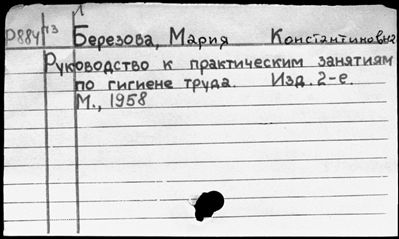 Л
Р884/73 Березова, Мария Константиновна
Руководство к практическим занятиям
по гигиене труда. Изд. 2-е.
М., 1958